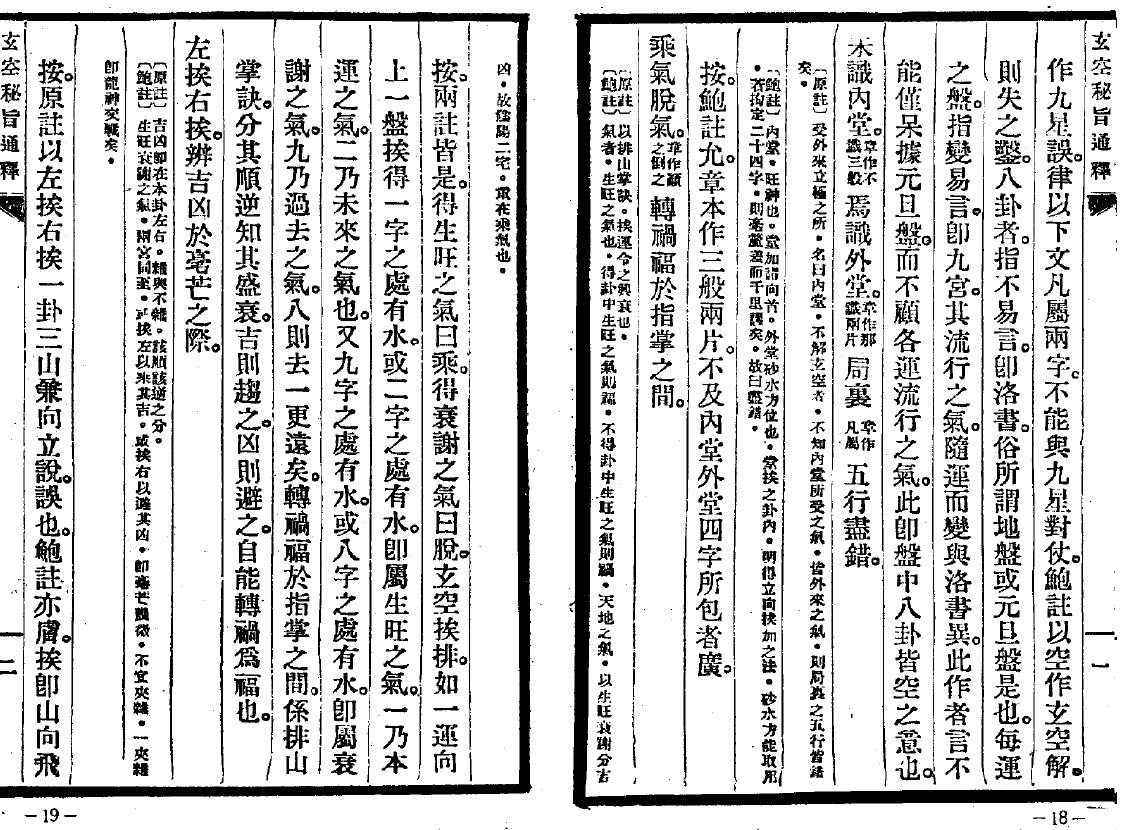 玄空秘旨通釋
作九星誤。律以下文凡屬兩字。不能與九星對仗。鮑註以空作玄空解。
則失之鑿。八卦者。指不易言。卽洛書。俗所謂地盤或元旦盤是也。每運
之盤。指變易言。卽九宮。其流行之氣。隨運而變。與洛書異。此作者言不
能僅呆據元旦盤。而不顧各運流行之氣。此卽盤中八卦皆空之意也。
未識內堂。章作不識三般 焉識外堂。章作那識兩片 局裏 章作凡屬 五行盡錯。
〔原註〕受外來立極之所。名曰內堂。不解玄空者。不知內堂所受之氣。皆外來之氣。則局裏之五行皆錯
矣。
〔鮑註〕內堂。旺神也。當加諸向首。外堂砂水方位也。當挨之卦內。明得立向挨加之法。砂水方能取用
。若拘定二十四字。則毫釐差而千里謬矣。故曰盡錯。
按。鮑註允。章本作三般兩片。不及內堂外堂四字所包者廣。
乘氣脫氣。章作顚之倒之 轉禍福於指掌之間。
〔原註〕以排山掌訣。挨運令之興衰也。
〔鮑註〕氣者。生旺之氣也。得卦中生旺之氣則福。不得卦中生旺之氣則禍。天地之氣。以生旺衰謝分吉
一一
—18—
凶。故陰陽二宅。重在乘氣也。
按。兩註皆是。得生旺之氣曰乘。得衰謝之氣曰脫。玄空挨排。如一運向
上一盤挨得一字之處有水。或二字之處有水。卽屬生旺之氣。一乃本
運之氣。二乃未來之氣也。又九字之處有水。或八字之處有水。卽屬衰
謝之氣。九乃過去之氣。八則去一更遠矣。轉禍福於指掌之間。係排山
掌訣。分其順逆。知其盛衰。吉則趨之。凶則避之。自能轉禍爲福也。
左挨右挨。辨吉凶於毫芒之際。
〔原註〕吉凶卽在本卦左右。雜與不雜。該順該逆之分。
〔鮑註〕生旺衰謝之氣。兩宮同至。或挨左以乘其吉。或挨右以避其凶。卽毫芒機微。不宜夾雜。一夾雜
卽龍神交戰矣。
按。原註以左挨右挨一卦三山兼向立說。誤也。鮑註亦膚。挨卽山向飛
玄空秘旨通釋
一二
—19—